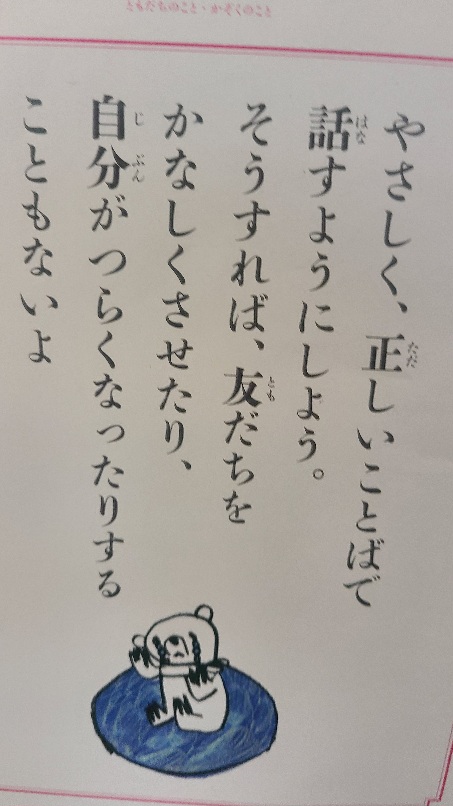 ともだちのこと・かぞくのこと
やさしく、正しいことばで
話すようにしよう。
そうすれば、友だちを
かなしくさせたり、
自分がつらくなったりする
こともないよ
ただ
はな
とも
じぶん